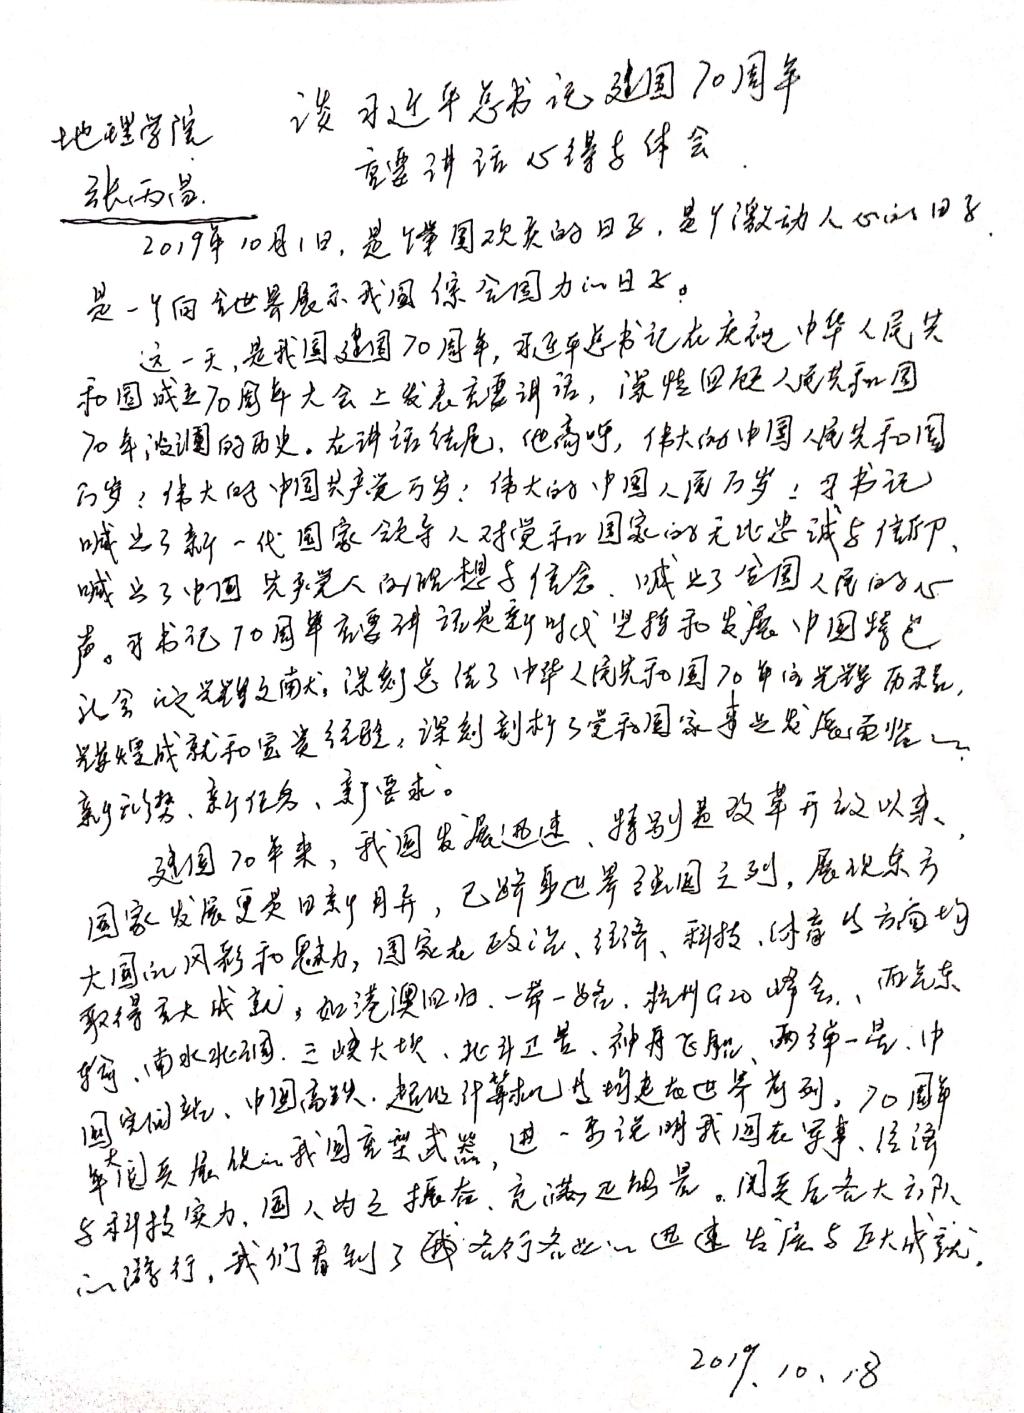 谈习近平总书记建国70周年
重要讲话心得与体会.
地理学院
张丙昌.
2019年10月1日,是个举国欢庆的日子,是个激动人心的日子.
是一个向全世界展示我国综合国力的日子。
这一天,是我国建国70周年,习近平总书记在庆祝中华人民共
和国成立70周年大会上发表重要讲话,深情回顾人民共和国
70年波澜的历史。在讲话结尾,他高呼,伟大的中国人民共和国
万岁!伟大的中国共产党万岁!伟大的中国人民万岁!习书记
喊出了新一代国家领导人对党和国家的无比忠诚与信仰、
喊出了中国共产党人的理想与信念、喊出了全国人民的心
声。习书记70周年重要讲话是新时代坚持和发展中国特色
社会 光辉文献,深刻总结了中华人民共和国70年的光辉历程,
辉煌成就和宝贵经验,深刻剖析了党和国家事业发展面临的
新形势、新任务、新要求。
建国70年来,我国发展迅速、特别是改革开放以来、
国家发展更是日新月异,已跻身世界强国之列,展现东方
大国的风彩和魅力,国家在政治、经济、科技、体育等方面均
取得重大成就,如港澳回归、一带一路、杭州G20峰会、西气东
输、南水北调、三峡大坝、北斗卫星、神舟飞船、两弹一星、中
国空间站、中国高铁、超级计算机等均走在世界前列,70周年
年大阅兵展伏的我国重型武器,进一步说明我国在军事、经济
与科技实力、国人为之振奋、充满正能量。阅兵后各大方队
的游行,我们看到了我各行各业的迅速发展与巨大成就.
2019.10.18